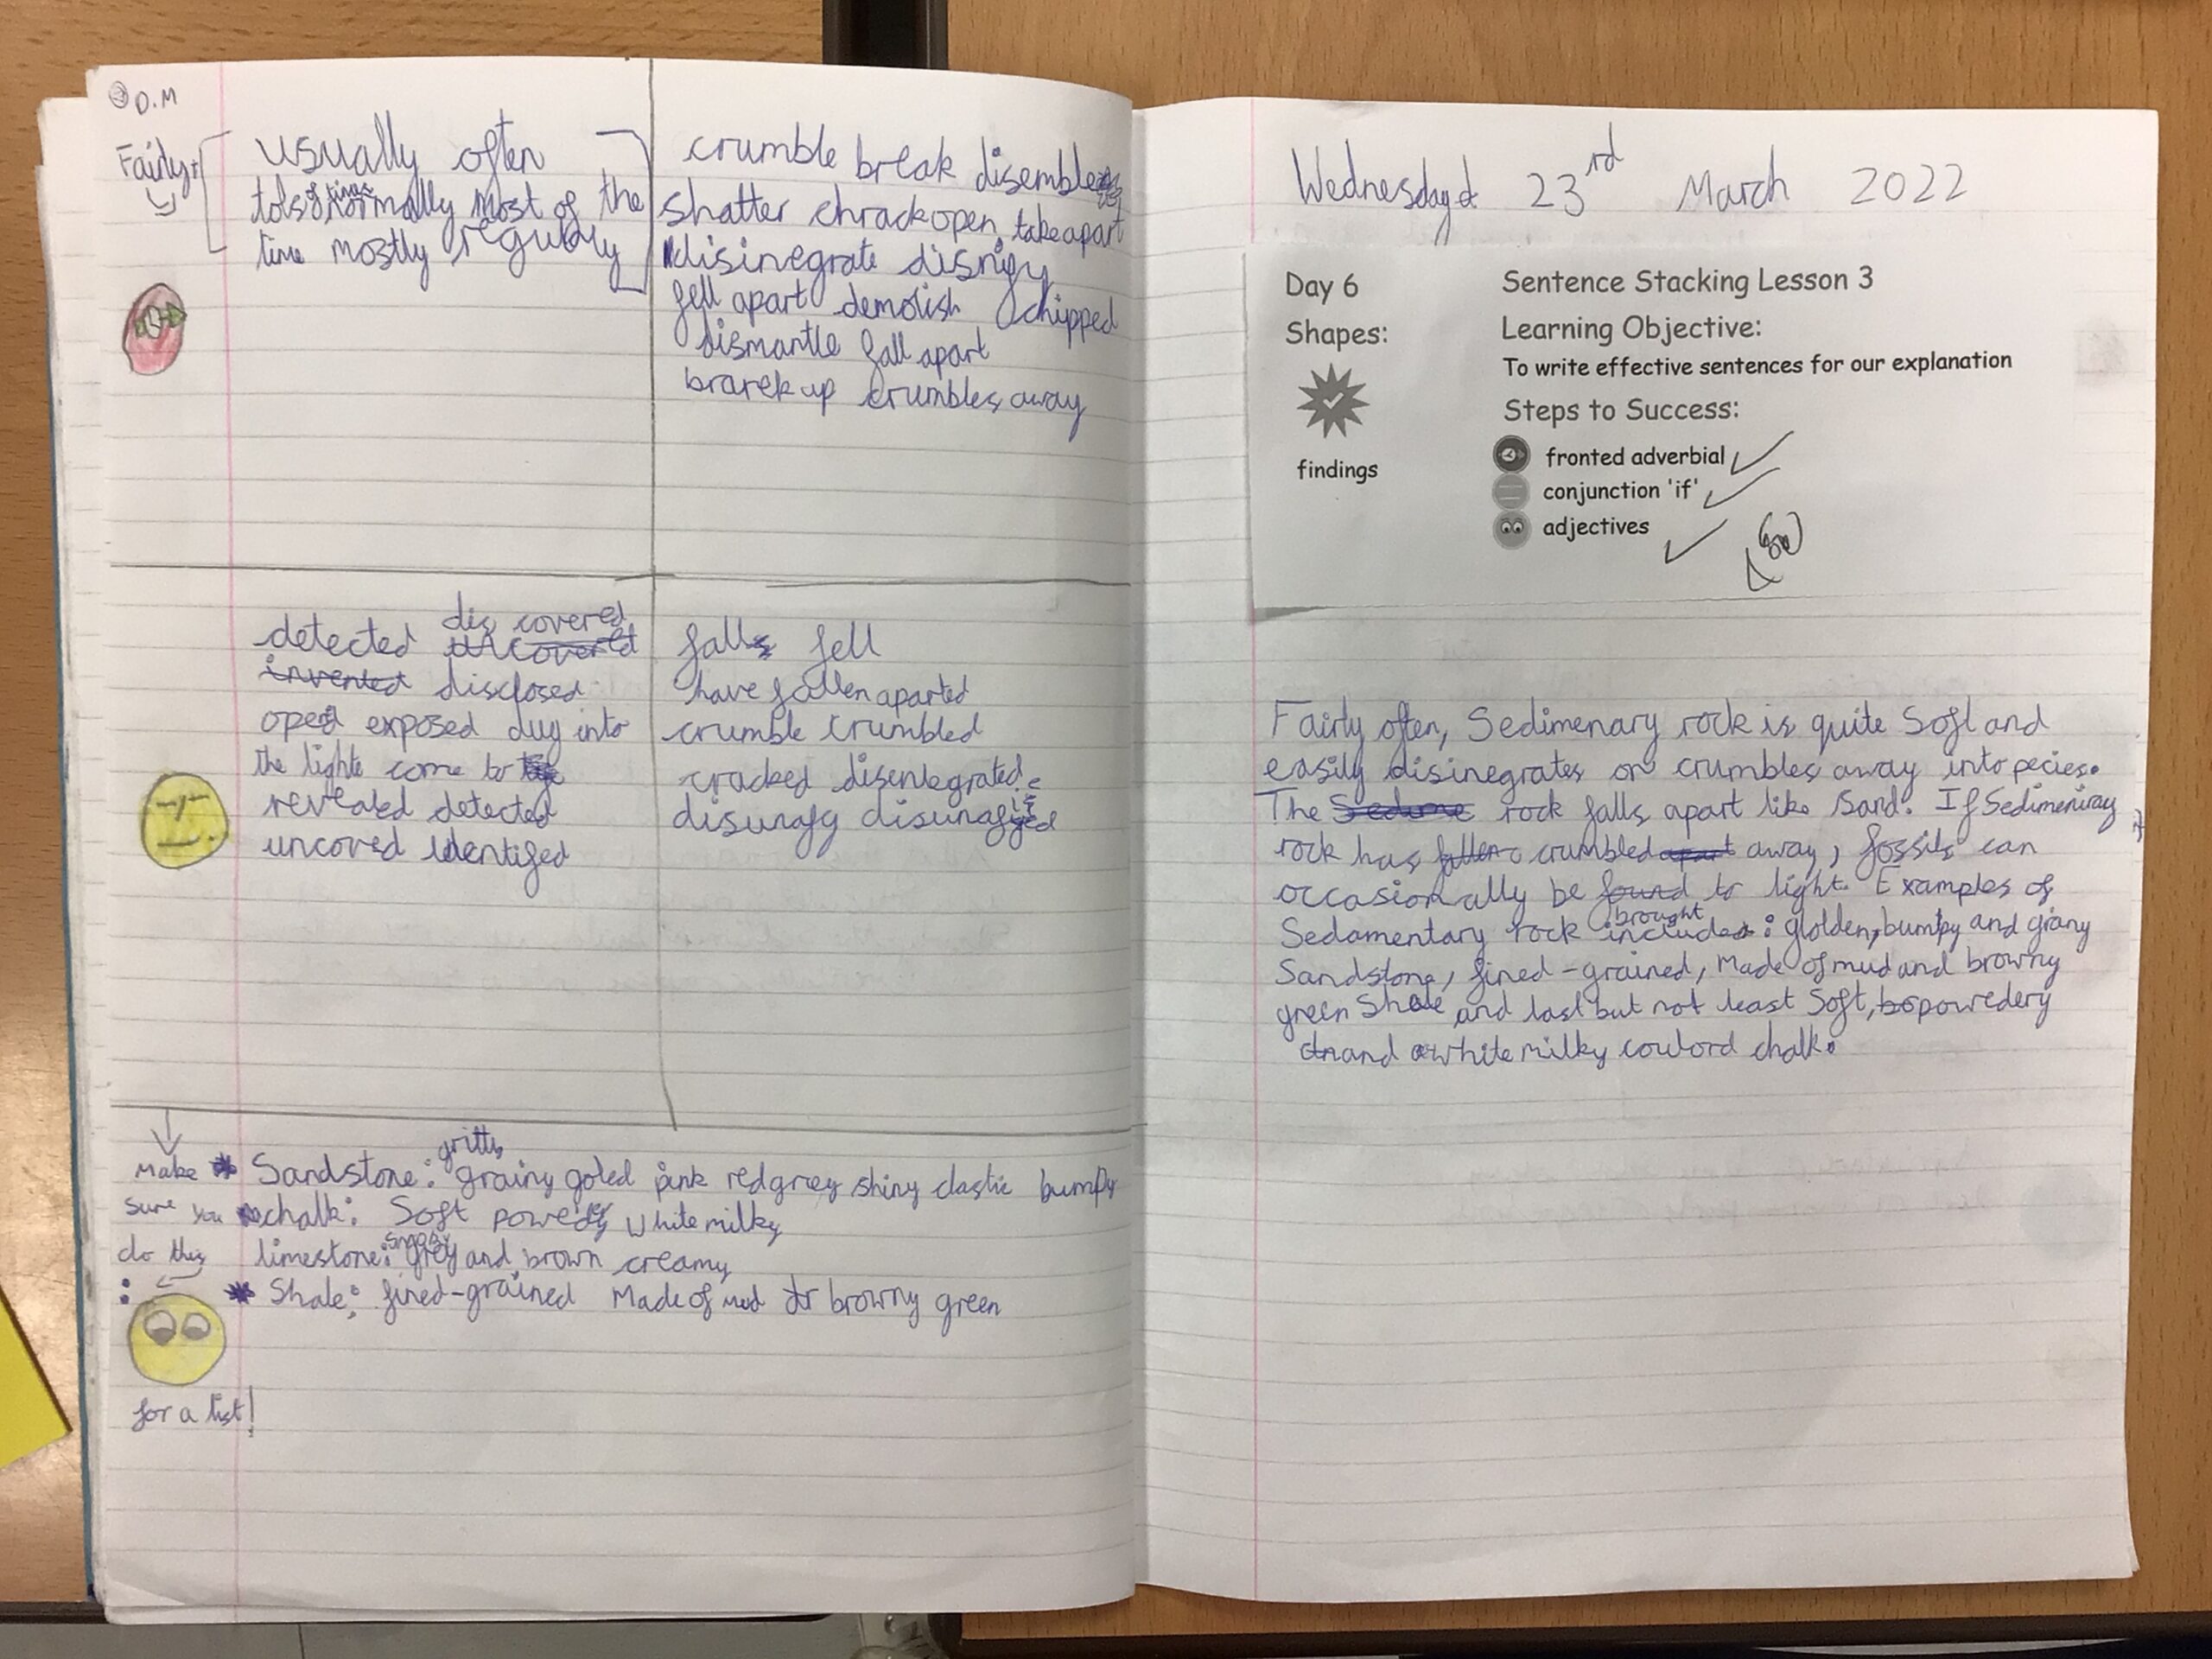 D.M
Fairly+
usually often
tols of times normally most of the
time mostly regulary
crumble break disemble
shatter chrack open take apart
disinegrate disnify
fell apart demolish chipped
dismantle fall apart
brarek up crumbles away
detected dis covered
invented disclosed
oped exposed dug into
the light come to
revealed detected
uncoved identifed
falls fell
have fallen aparted
crumble crumbled
cracked disentegrated
disunafy
Make sure you do this :
for a list!
gritty
Sandstone: grainy goled pink red grey shiny clastic bumpy
chalk: Soft powedry White milky
limestone: grey and brown creamy
Shale: fined-grained Made of mud browny green
Wednesday 23rd March 2022
Day 6
Shapes:
findings
Sentence Stacking Lesson 3
Learning Objective:
To write effective sentences for our explanation
Steps to Success:
fronted adverbial
conjunction 'if'
adjectives
Fairly often, Sedimenary rock is quite Soft and
easily disinegrates or crumbles away into pecies.
The Sedime rock falls apart like Sand. If Sedimentray
rock has fallen crumbled apart away, fossils can
occasionally be found to light. Examples of
brought
Sedamentary rock includes: glolden, bumpy and grany
Sandstone, fined-grained, Made of mud and browny
green Shale and last but not least Soft, bo powedery
an and white milky coulord chalk.